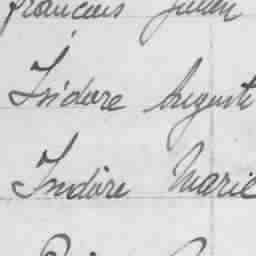 françois Julien
Isidore August
Isidore Marie